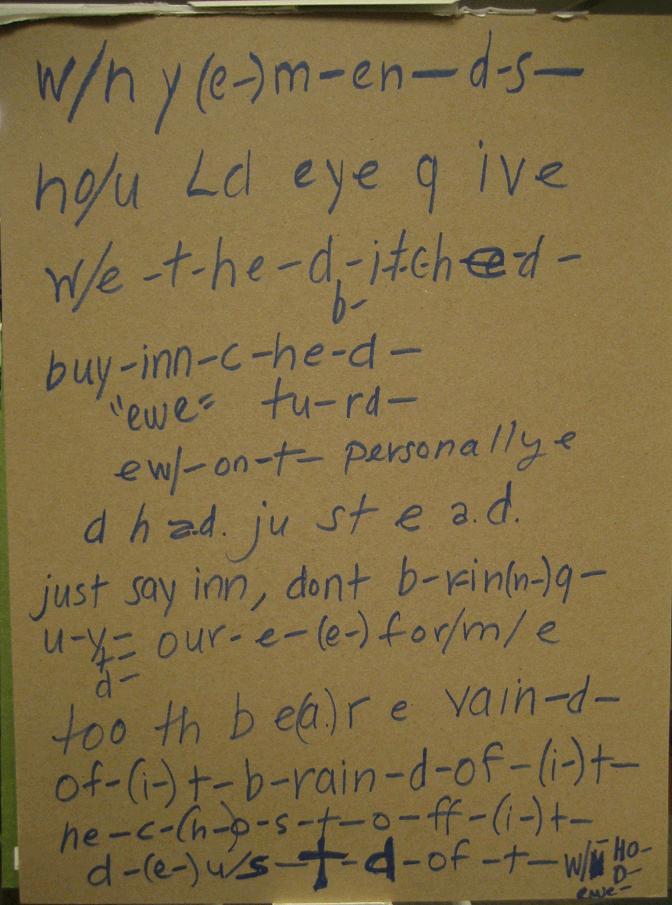 w/n y(e-)m-en-d-s-
ho/u Ld eye q ive
w/e -t-he-d-itched-
b-
buy-inn-c-he-d-
"ewe" tu-rd-
ew/-on-t- personally e
d h ad. ju st e a.d.
just say inn, dont b-rin(n-)g-
u-y- our-e-(e-)for/m/e
t-
d-
too th b e(a.)r e vain-d-
of-(i-)t-b-rain-d-of-(i-)t-
he-c-(h-)o-s-t-o-ff-(i-)t-
d-(e-)u/s-t-d-of-t-w/ HO-
D-
ewe-